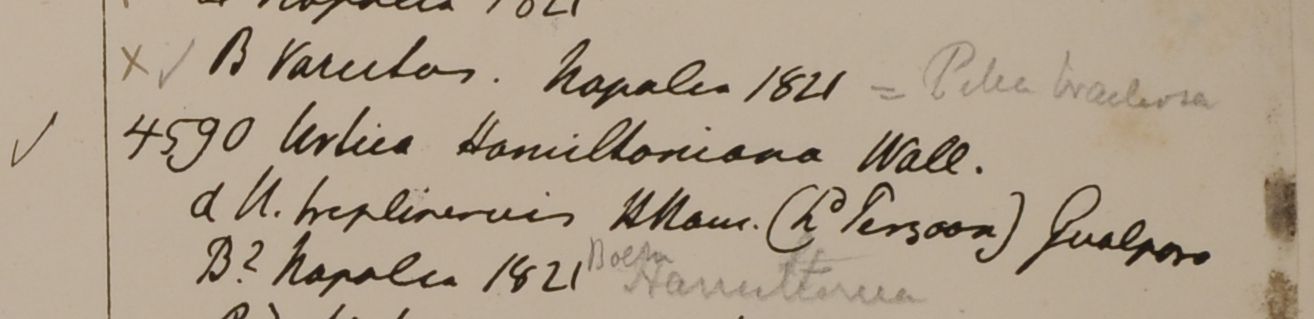 Napalia 1821
B Varietas. Napalea 1821 = Pilea bracteosa
4590 Urtica Hamiltoniana Wall.
a U. treplinervis HHam. (Persoon) Gualpara
B? Napalea 1821 Boehm Hamiltonia